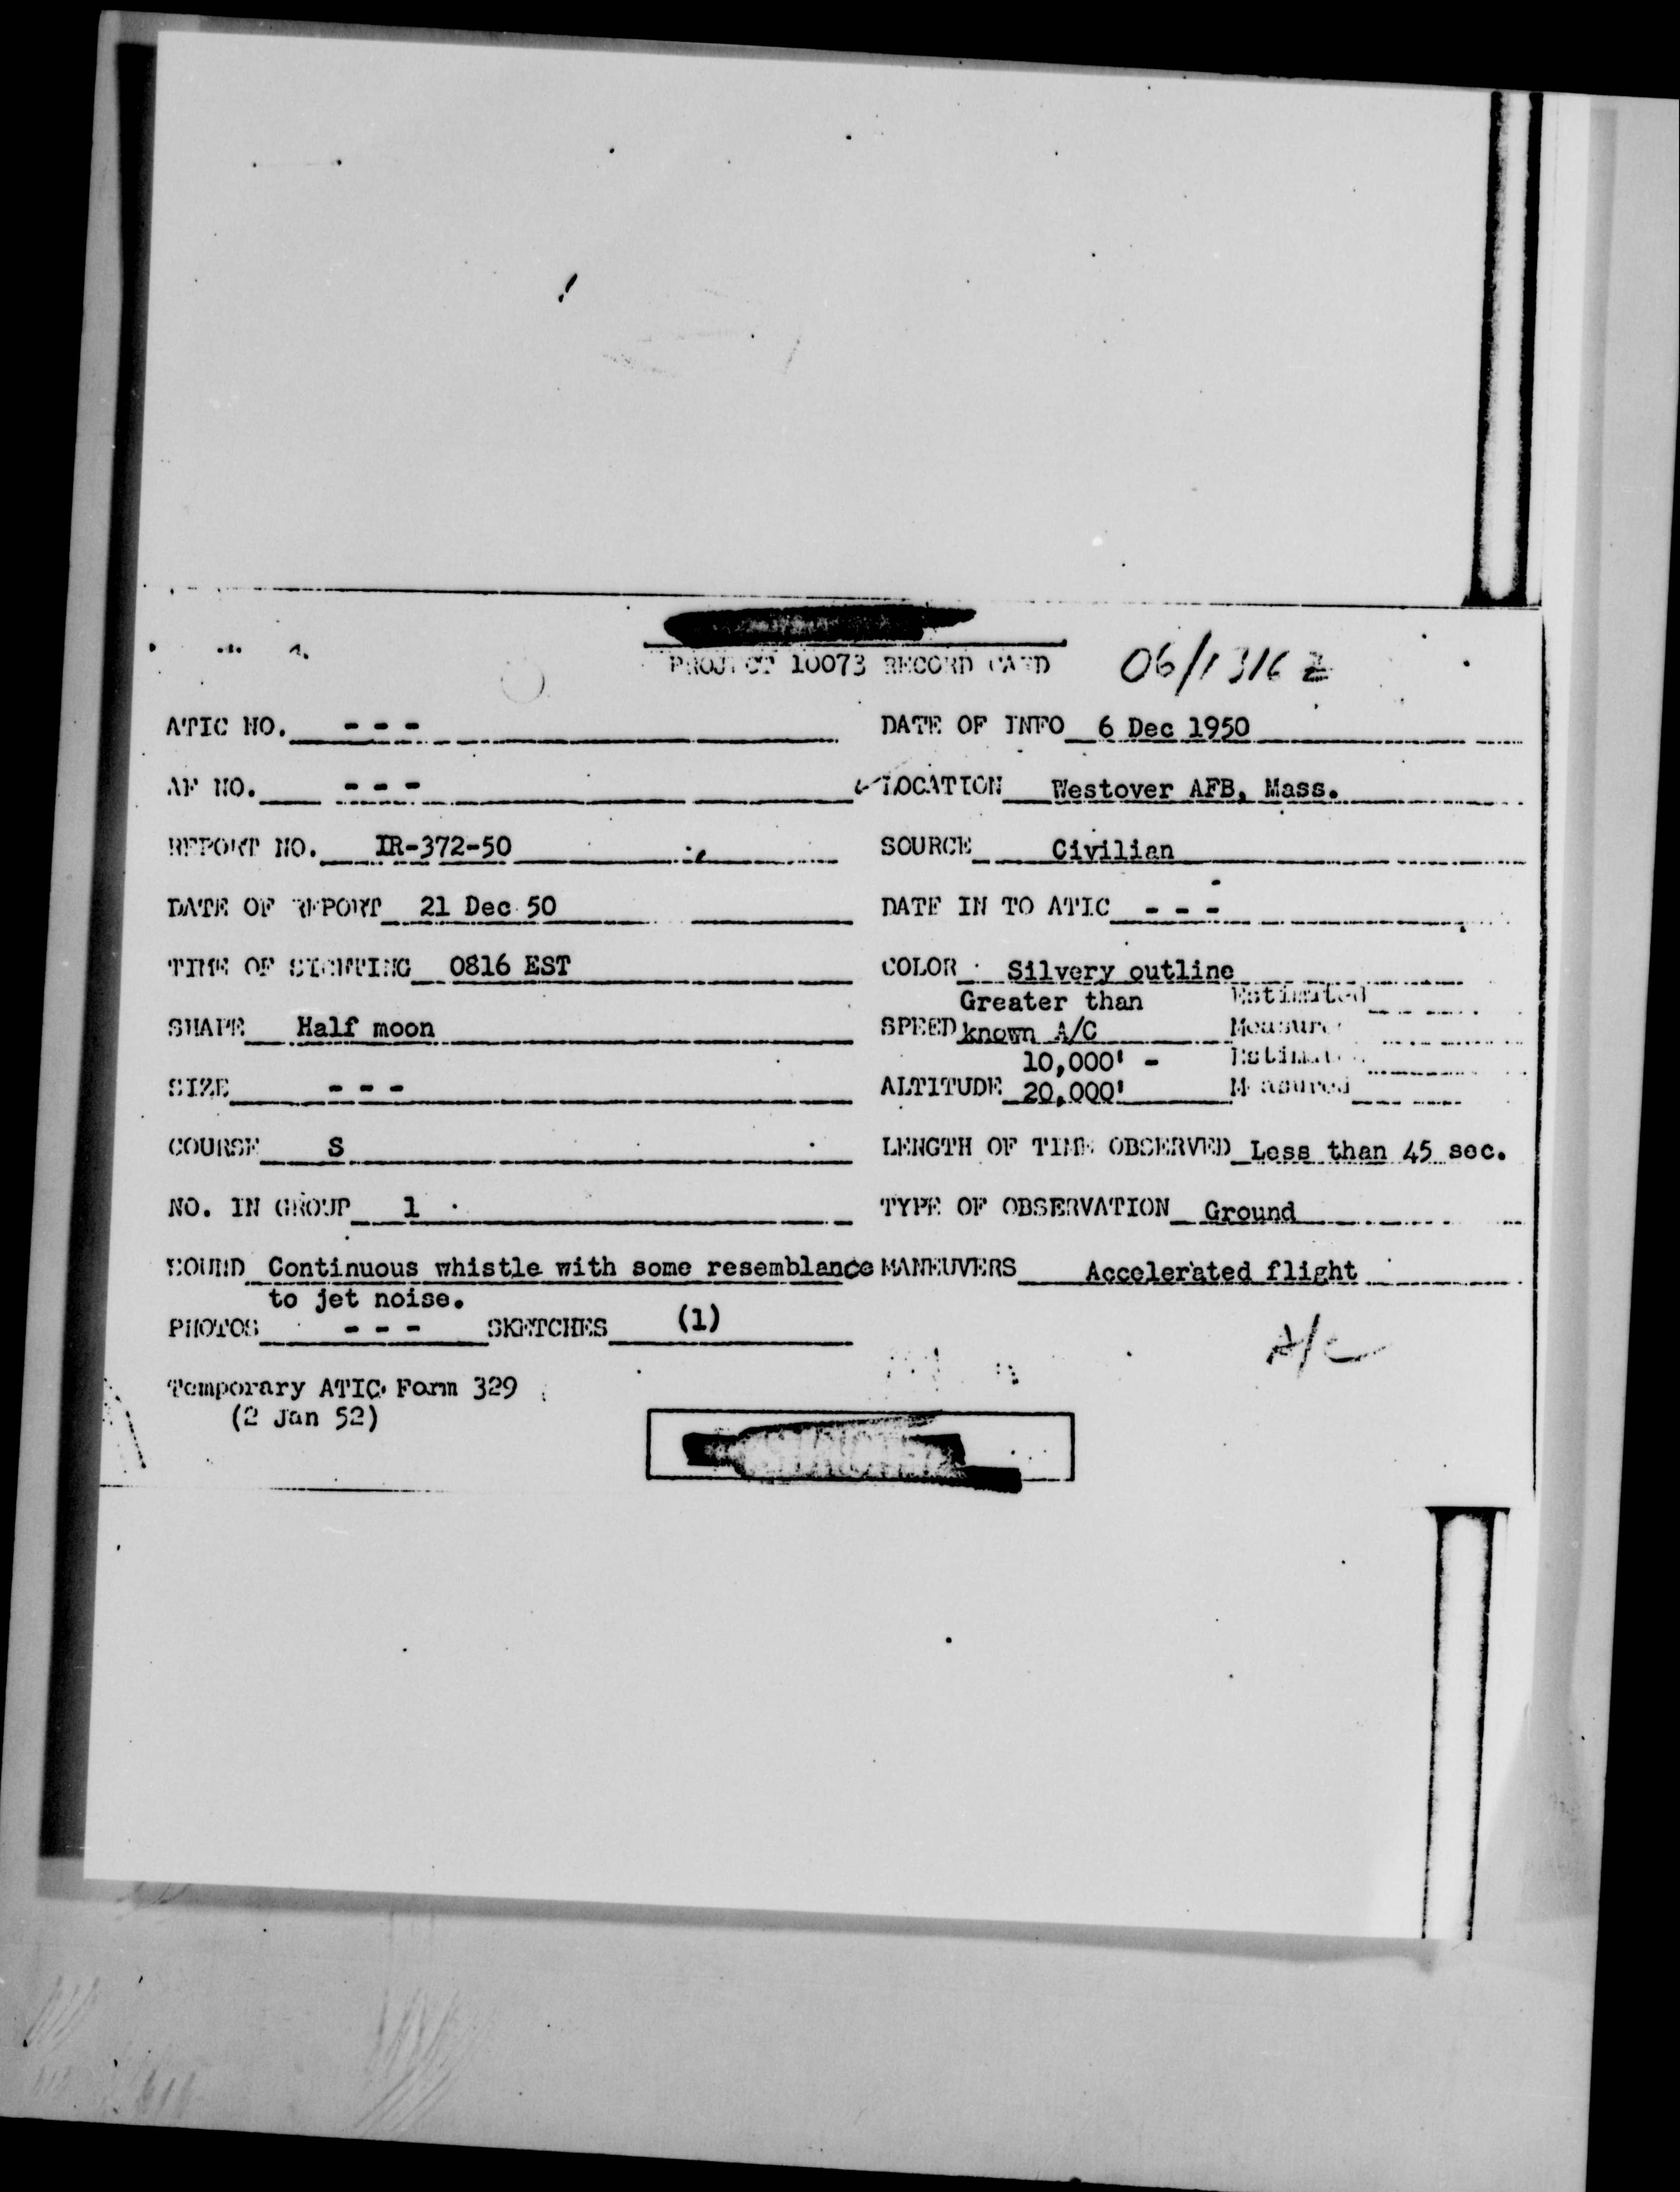 PROJECT 10073 RECORD CARD 06/1316Z
ATIC NO. - - - DATE OF INFO 6 Dec 1950
AF NO. - - - LOCATION Westover AFB, Mass.
REPORT NO. IR-372-50 SOURCE Civilian
DATE OF REPORT 21 Dec 50 DATE IN TO ATIC - - -
TIME OF SIGHTING 0816 EST COLOR Silvery outline
Greater than Estimated
SHAPE Half moon SPEED known A/C Measured
10,000' - Estimated
SIZE - - - ALTITUDE 20,000' Measured
COURSE S LENGTH OF TIME OBSERVED Less than 45 sec.
NO. IN GROUP 1 TYPE OF OBSERVATION Ground
SOUND Continuous whistle with some resemblance MANEUVERS Accelerated flight
to jet noise.
PHOTOS - - - SKETCHES (1)
A/C
Temporary ATIC Form 329
(2 Jan 52)